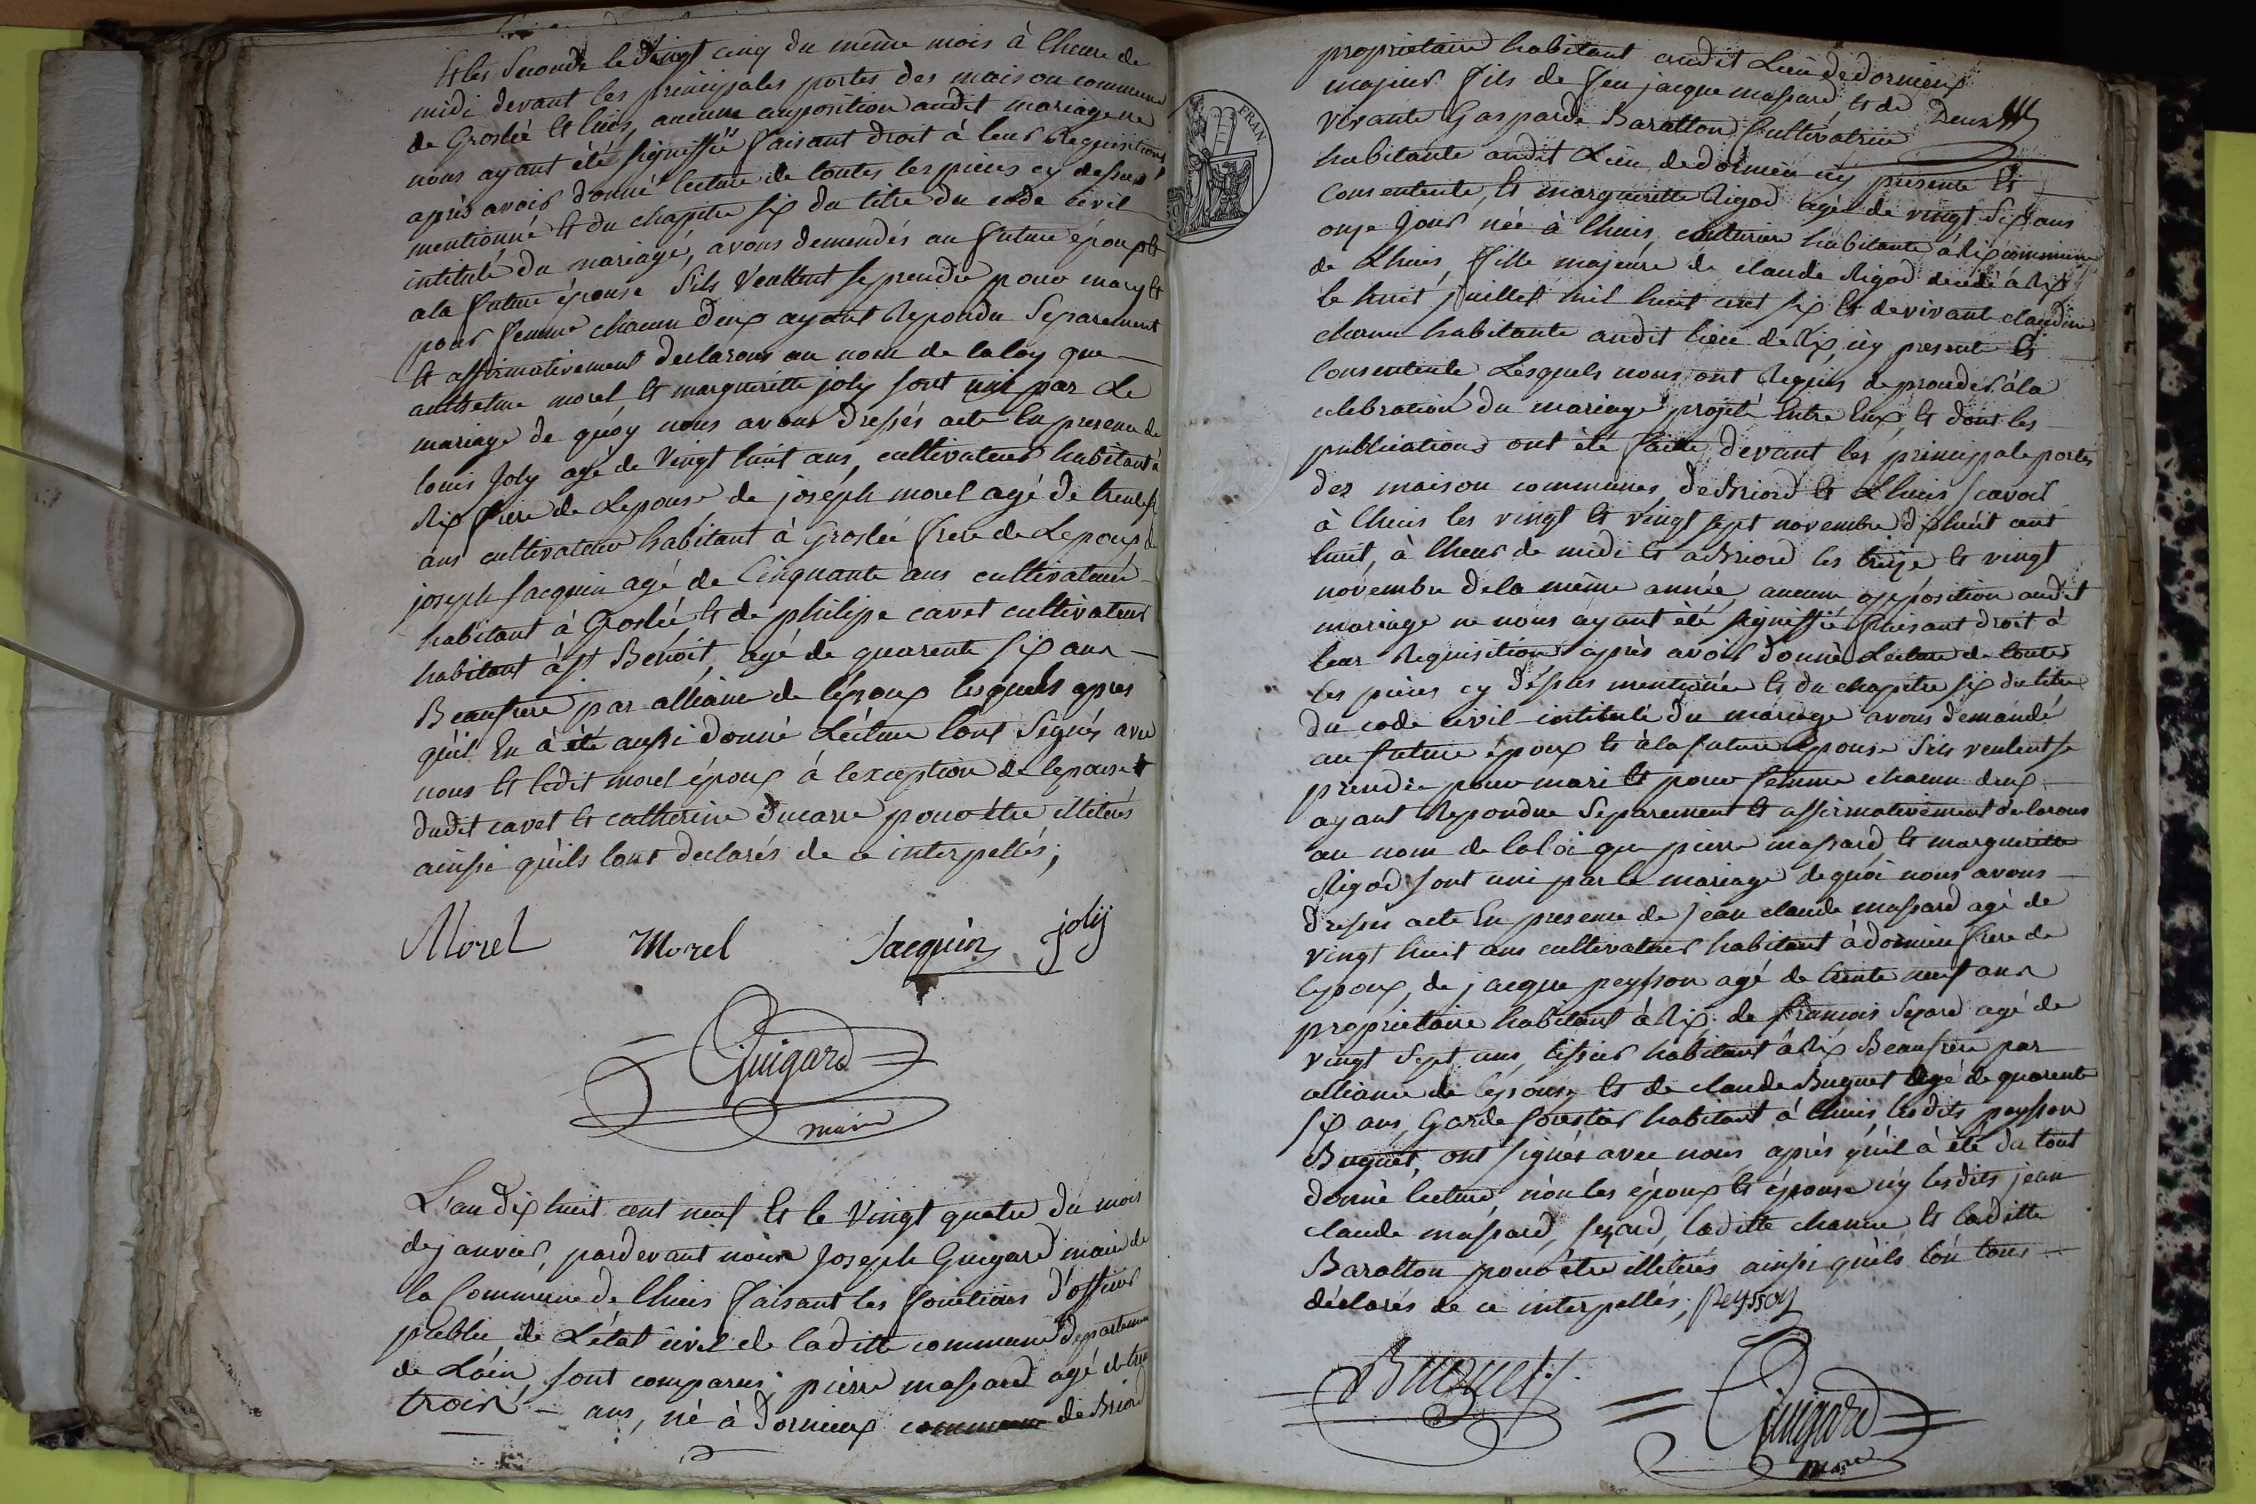 Et les seconds le vingt cinq du même mois à lheure de
midi devant les principales portes des maison commune
de Groslée et lhuis, aucune oxposition audit mariage ne
nous ayant été signiffié faisant droit à leur Requisitions
après avoir donné lecture de toutes les pièces cy dessus
mentionné et du chapitre six du titre du code civil
intitulé du mariage, avons demendés au future époux et
a la future épouse sils veullent se prendre pour mary et
pour femme chacun deux ayant Repondu Separement
et affirmativement declarons au nom de la loy que
anthelme morel et margueritte joly sont uni par Le
mariage de quoy nous avons dressés acte En presence de
louis Joly agé de vingt huit ans, cultivateur habitant à
Rix frere de Lepouse de joseph morel agé de trente
ans cultivateur habitant à Groslée frere de Lepoux, de
joseph Jacquin agé de Cinquante ans cultivateur
habitant à Groslée et de philipe cavet cultivateur
habitant à St Benoit, agé de quarente six ans
Beaufrere par alliance de lépoux lesquels apres
qu'il En à été aussi donné Lécture lont Signés avec
nous et ledit morel époux à lexception de lepouse
dudit cavet et catherine ducarre pour être illetérés
ainssi qu'ils lont declarés de ce interpellés,
Morel Morel Jacquin joly
Guigard
maire
L'an dix huit cent neuf Et le vingt quatre du mois
de janvier, pardevant nous Joseph Guigard maire de
la Commune de lhuis faisant les fonctions d'officier
public de Létat civil de laditte commune departement
de Lain, sont comparus pierre massard agé de trente
trois ans, né à dornieux commune de Briord
propriétaire habitant audit Lieu de dornieux
majeur fils de feu jacque massard, et de
vivante Gasparde Baratton Cultivatrice
habitante audit Lieu de dornieu icy présente et
consentente, et margueritte Rigod agée de vingt six ans
onze jours née à lhuis, couturiere habitante à Rix commune
de Lhuis, fille majeure de claude Rigod decedé à Rix
le huit juillet mil huit cent six et de vivant claudine
chanu habitante audit lieu de Rix, icy presente et
Consentente, Lesquels nous ont Requis de proceder à la
celebration du mariage projeté Entre Eux, et dont les
publications ont été faitte devant les principale portes
des maison communes, de Briord et Lhuis scavoir
à lhuis les vingt et vingt sept novembre dix huit cent
huit, à lheure de midi et a Briord les treize et vingt
novembre de la même année, aucune opposition audit
mariage ne nous ayant été signiffié faisant droit à
leur Requisition après avoir donné Lecture de toutes
les pièces cy dessus mentionnée et du chapitre six du titre
du code civil intitulé du mariage avons demandé
au future époux et à la future épouse sils veulent se
prendre pour mari et pour femme chacun deux
ayant Repondue Separement et affirmativement declarons
au nom de la loi que pierre massard et margueritte
Rigod sont uni par le mariage de quoi nous avons
dressés acte En presence de Jean claude massard agé de
vingt huit ans cultivateur habitant à dornieu frere de
lepoux, de jacque peysson agé de trente neuf ans
proprietaire habitant à Rix de francois Sezard agé de
vingt sept ans, tissier habitant à Rix Beaufrere par
alliance de lepouse, et de claude Buguet agé de quarente
six ans Garde forestier habitant à lhuis, lesdits peysson
Buguet, ont signés avec nous après qu'il à été du tout
donné lecture non les époux et épouse n'y lesdits jean
claude massard, sezard, laditte chanu et laditte
Baratton pour être illetérés ainssi qu'ils lon tous
déclarés de ce interpellés, Peysson
Buguet
Guigard
maire